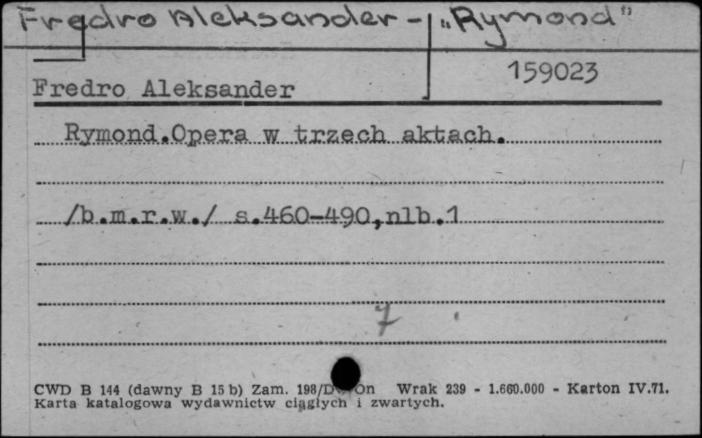 Fredro Aleksander - „Rymond"
159023
Fredro Aleksander
Rymond.Opera w trzech aktach.
/b.m.r.w./ s.460-490,nlb.1
7
CWD B 144 (dawny B 15 b) Zam. 198/ On Wrak 239 - 1.660.000 - Karton IV.71.
Karta katalogowa wydawnictw ciągłych i zwartych.